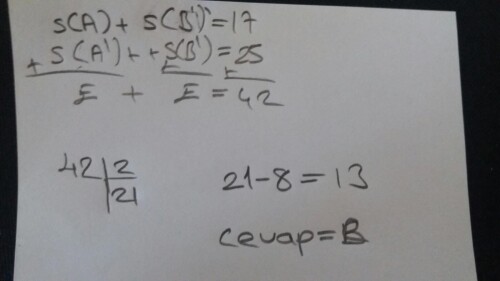 s(A) + s(B') = 17
+ s(A') + + s(B') = 25
E + E = 42
42 | 2
21
21-8=13
cevap=B